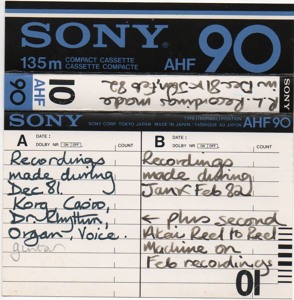 SONY
135m COMPACT CASSETTE
CASSETTE COMPACTE
AHF 90
10
AHF
90
R.L. Recordings made
in Dec 81 Feb 82
SONY
SONY CORP. TOKYO JAPAN
TYPE I (NORMAL) POSITION
MADE IN JAPAN / FABRIQUÉ AU JAPON
AHF 90
A
DATE :
DOLBY NR ON OFF
COUNT
Recordings
made during
Dec 81.
Korg Casio,
Dr. Rhythm,
Organ, Voice.
guitar
B
DATE :
DOLBY NR ON OFF
COUNT
Recordings
made during
Jan & Feb 82
← plus second
Akai Reel to Reel
Machine on
Feb recordings
10